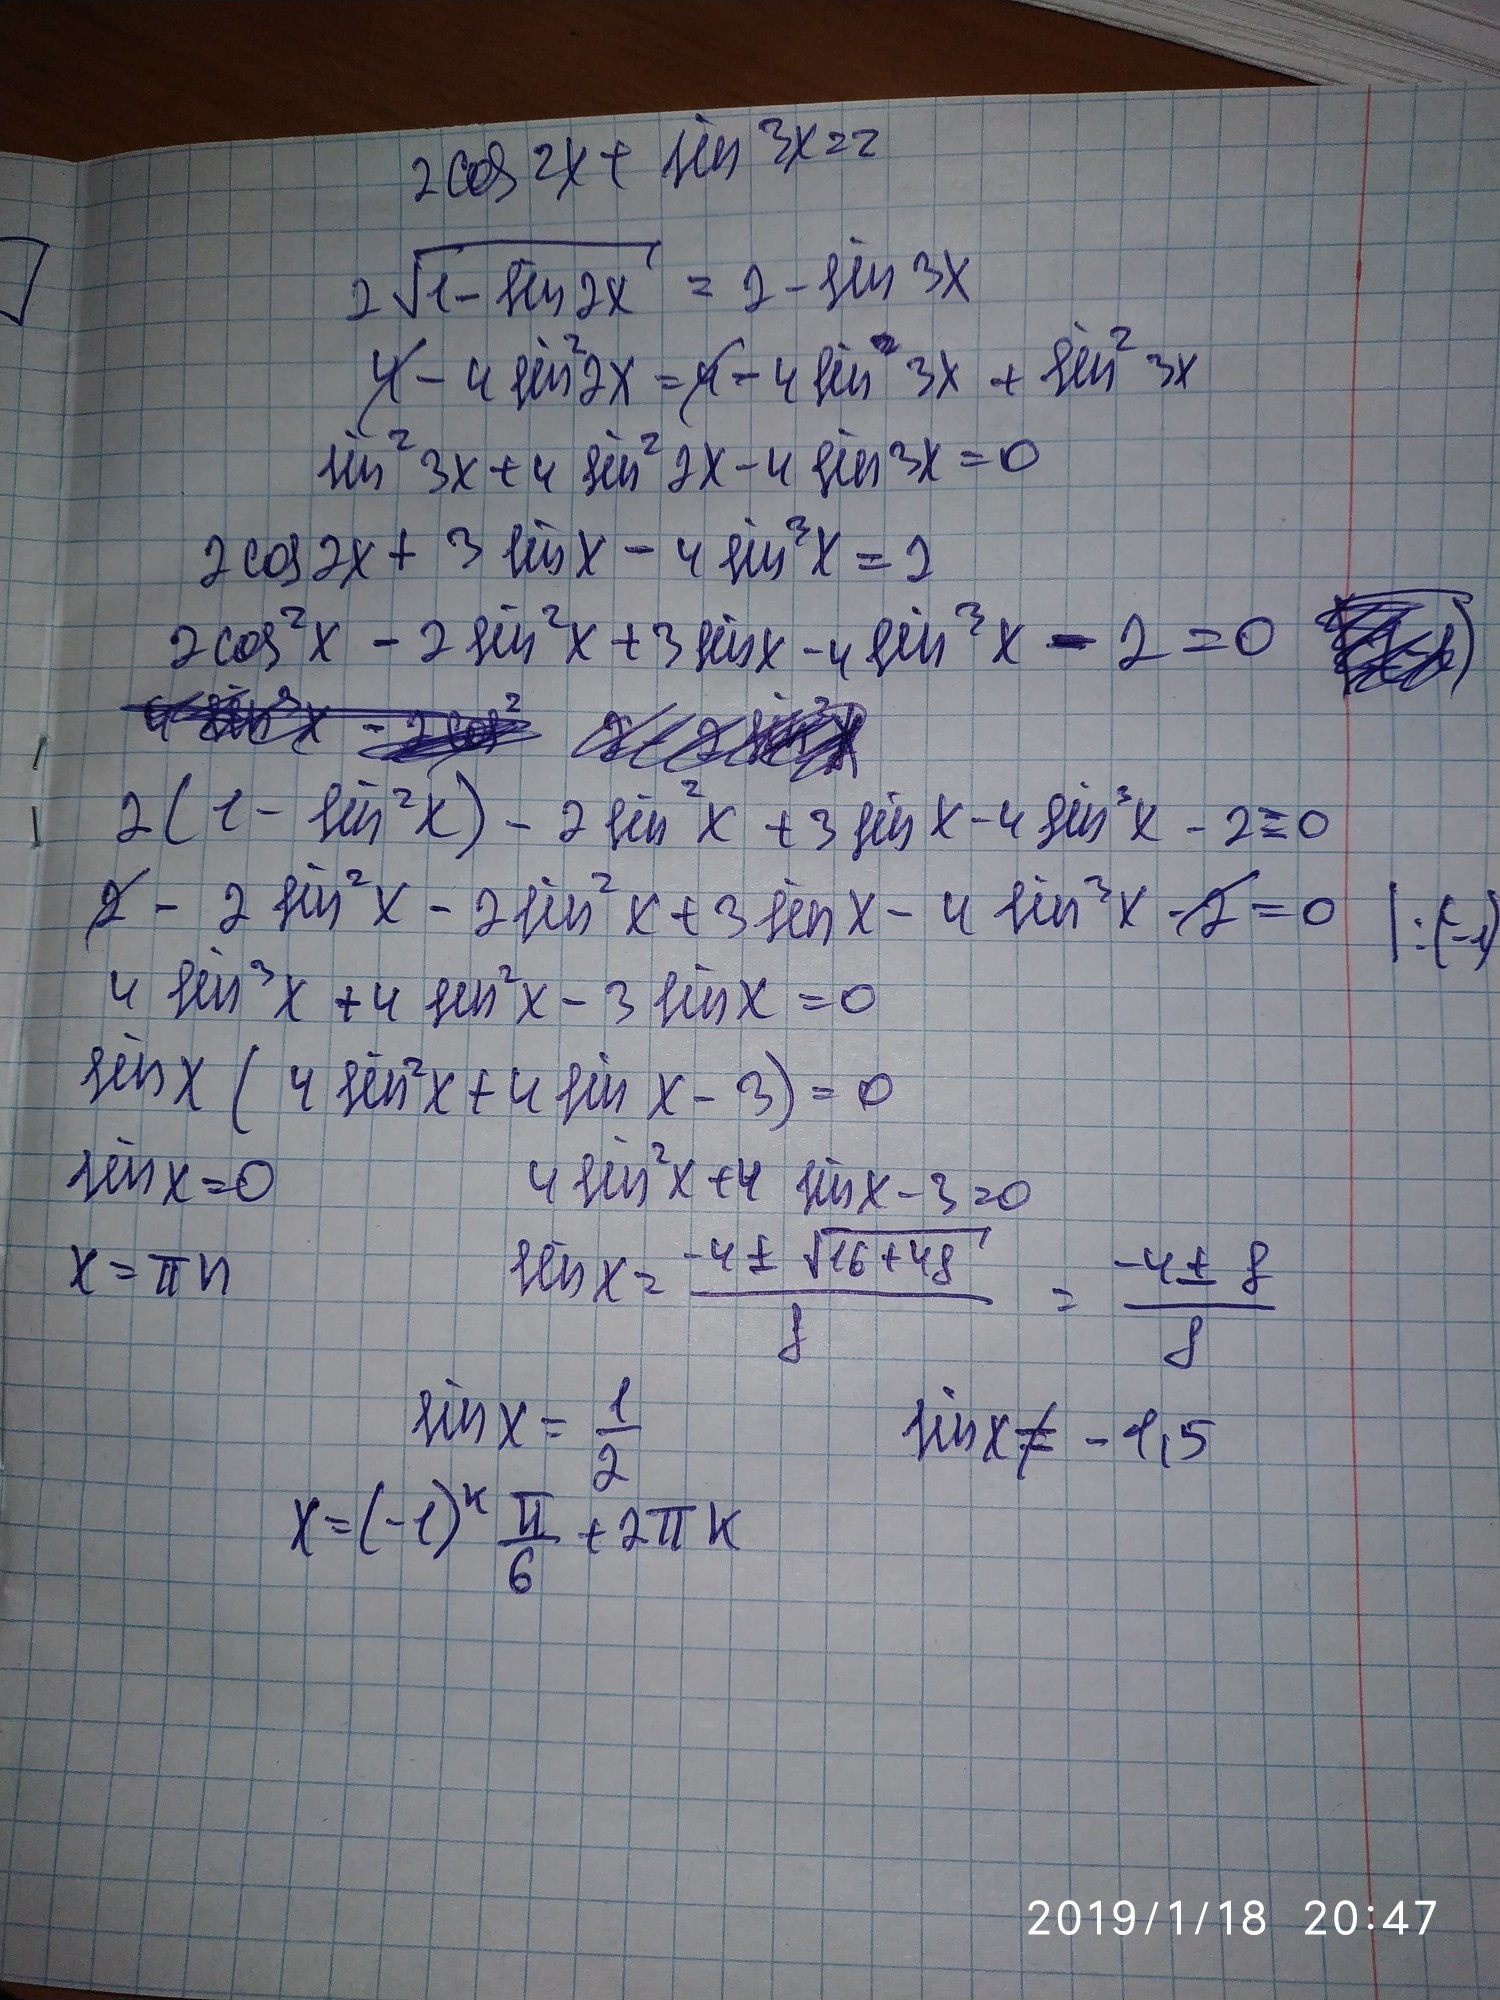 2cos2x + sin3x=2
2√1-sin2x = 2 - sin3x
4 - 4sin²2x = 4 - 4sin² 3x + sin² 3x
sin² 3x + 4 sin² 2x - 4 sin 3x = 0
2cos2x + 3 sinx - 4 sin³x = 2
2cos²x - 2sin²x + 3sinx - 4sin³x - 2 = 0
4 sin³x - 2cos²
2(1 - sin²x) - 2sin²x + 3sinx - 4sin³x - 2 = 0
2 - 2 sin²x - 2sin²x + 3sinx - 4 sin³x - 2 = 0 | :(-1)
4 sin³x + 4 sin²x - 3 sinx = 0
sinx ( 4 sin²x + 4 sin x - 3) = 0
sinx = 0 4 sin²x + 4 sinx - 3 = 0
x = πn sinx = -4 ± √16 + 48 / 8 = -4 ± 8 / 8
sinx = 1/2 sinx ≠ -1,5
x = (-1)ᵏ π/6 + 2πk
2019/1/18 20:47